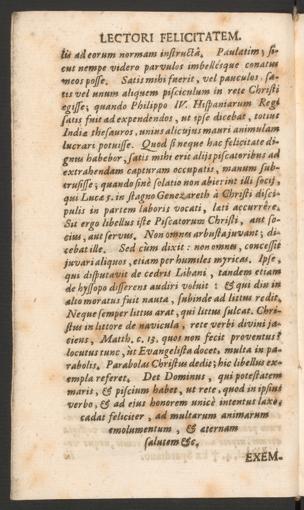 LECTORI FELICITATEM.
lis ad eorum normam instructâ. Paulatim, si-
cut nempe videro parvulos imbellésque conatus
meos posse. Satis mihi fuerit, vel pauculos, sa-
tis vel unum aliquem pisciculum in rete Christi
egisse; quando Philippo IV. Hispaniarum Regi
satis fuit ad expendendos, ut ipse dicebat, totius
Indiæ thesauros, unius alicujus mauri animulam
lucrari potuisse. Quod si neque hac felicitate di-
gnus habebor, satis mihi erit aliis piscatoribus ad
extrahendam capturam occupatis, manum sub-
trusisse; quando sinè solatio non abierint illi socij,
qui Lucæ 5. in stagno Genezareth à Christi disci-
pulis in partem laboris vocati, læti accurrêre.
Sit ergo libellus iste Piscatorum Christi, aut so-
cius, aut servus. Non omnes arbusta juvant; di-
cebat ille. Sed cùm dixit: non omnes, concessit
juvari aliquos, etiam per humiles myricas. Ipse,
qui disputavit de cedris Libani, tandem etiam
de hyssopo disserens audiri voluit: & qui diu in
alto moratus fuit nauta, subinde ad littus redit.
Neque semper littus arat, qui littus sulcat. Chri-
stus in littore de navicula, rete verbi divini ja-
ciens, Matth. c. 13. quos non fecit proventus?
locutus tunc, ut Evangelista docet, multa in pa-
rabolis. Parabolas Christus dedit; hic libellus ex-
empla referet. Det Dominus, qui potestatem
maris, & piscium habet, ut rete, quod in ipsius
verbo, & ad ejus honorem unicè intentus laxo,
cadat feliciter, ad multarum animarum
emolumentum, & æternam
salutem &c.
EXEM-